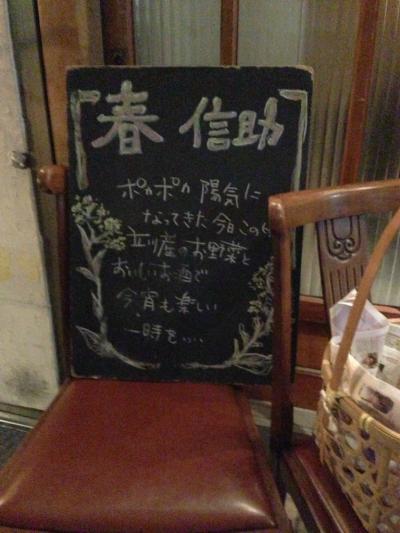 春 信助
ポカポカ 陽気に
なってきた 今日この
産のお野菜と
おいしいお酒で
今宵も楽しい
一時を…